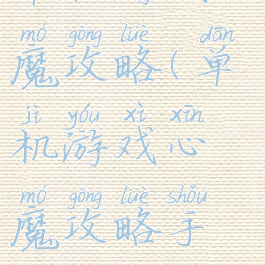 mó gōng lüè dān
魔攻略(单
jī yóu xì xīn
机游戏心
mó gōng lüè shǒu
魔攻略手